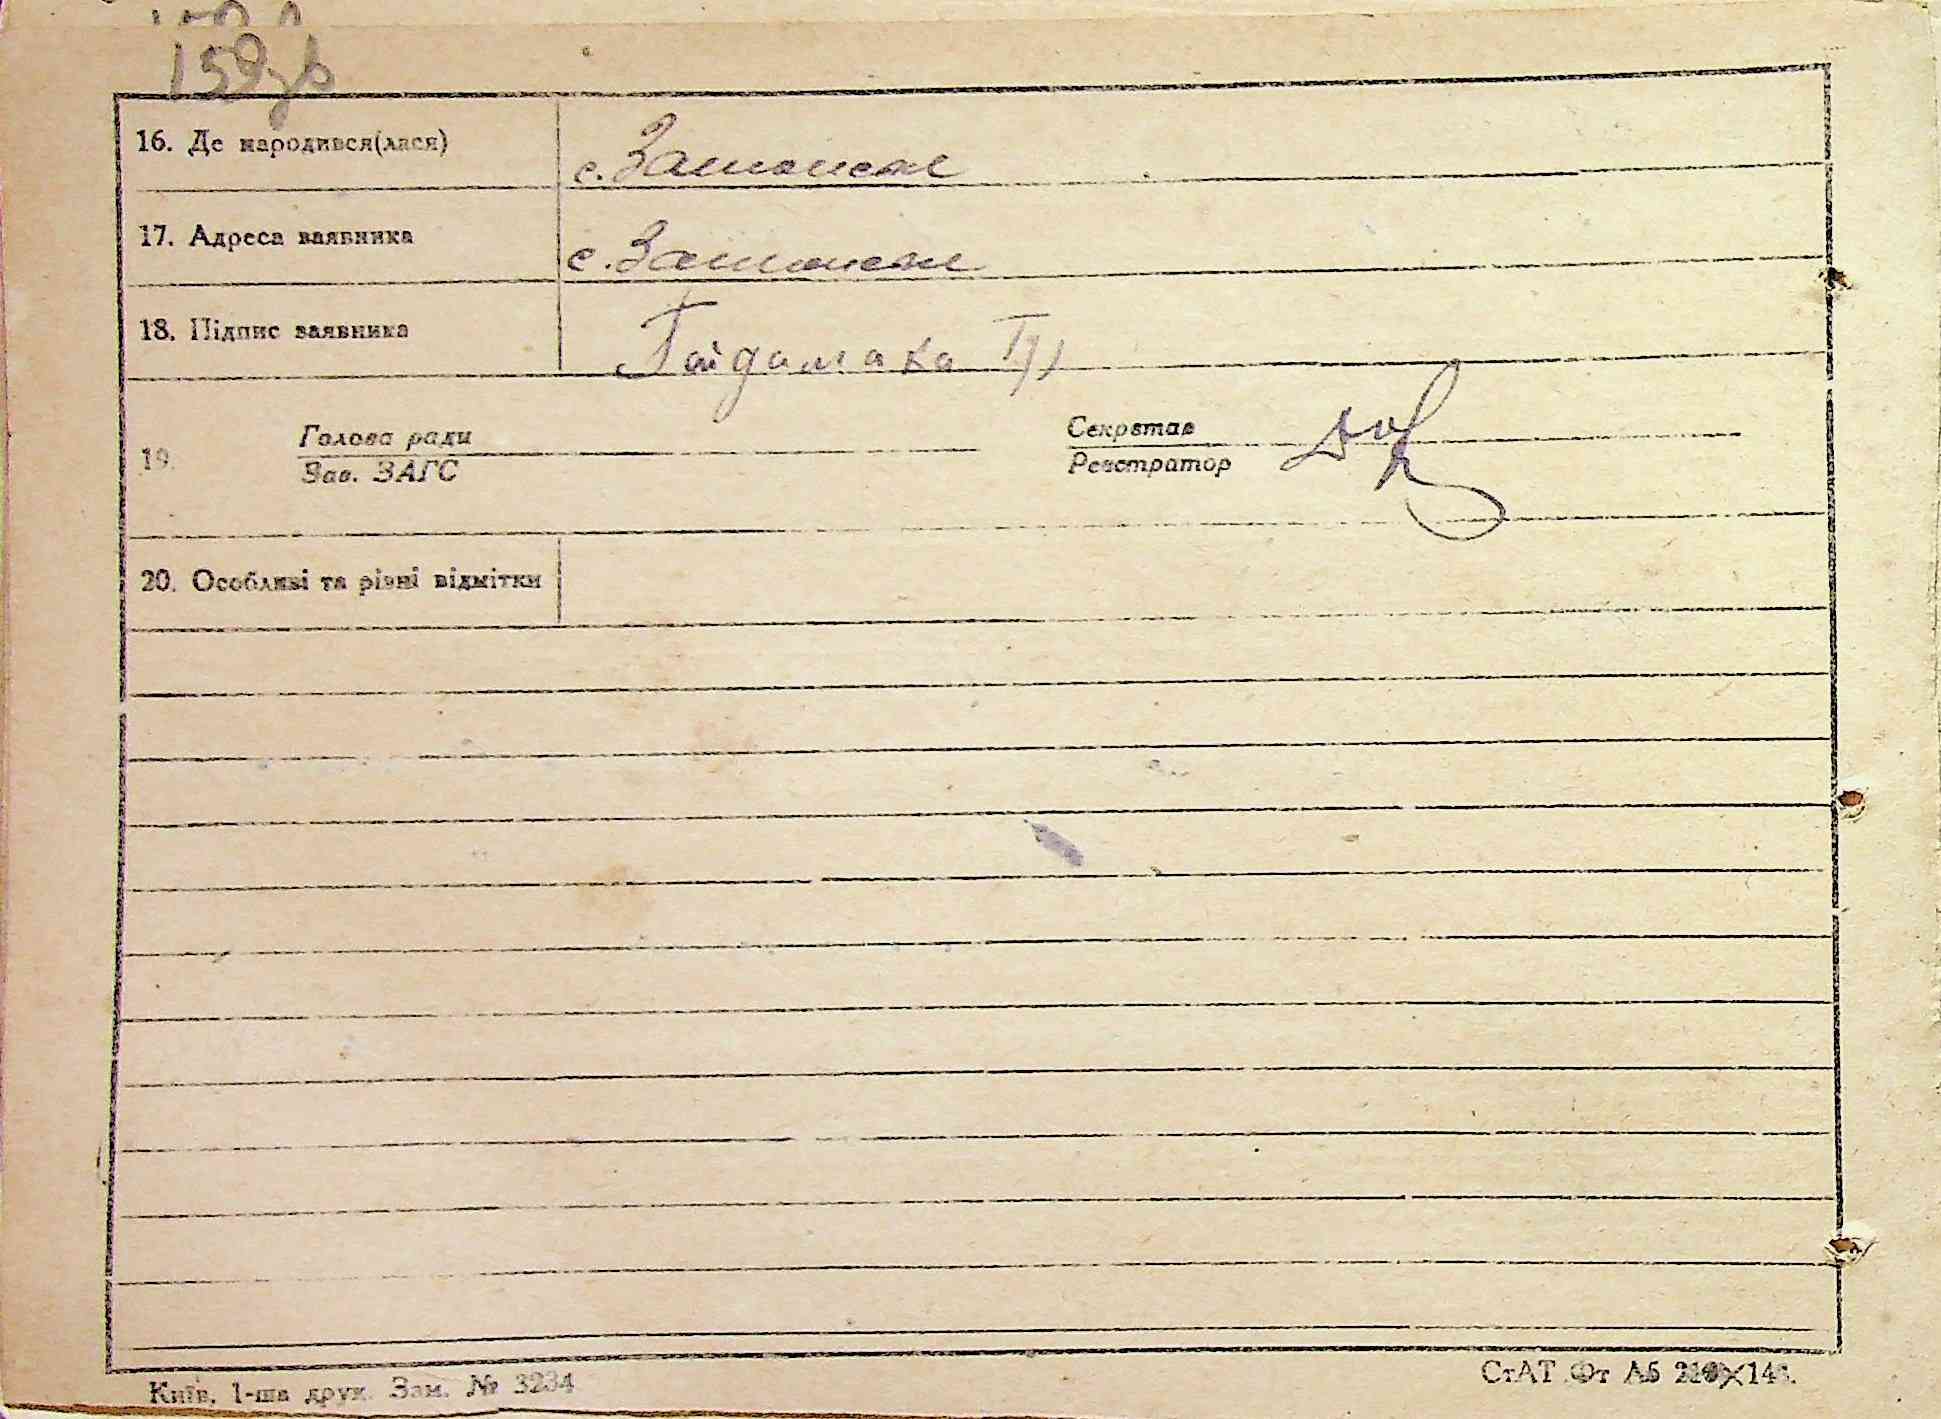 159зв
16. Де народився(лася)
с. Зашонськ
17. Адреса заявника
с. Зашонськ
18. Підпис заявника
Гайдамака
19.
Голова ради
Зав. ЗАГС
Секретар
Реєстратор
20. Особливі та різні відмітки
Київ, 1-ша друк. Зам. № 3234
СтАТ Фт А5 210×148.